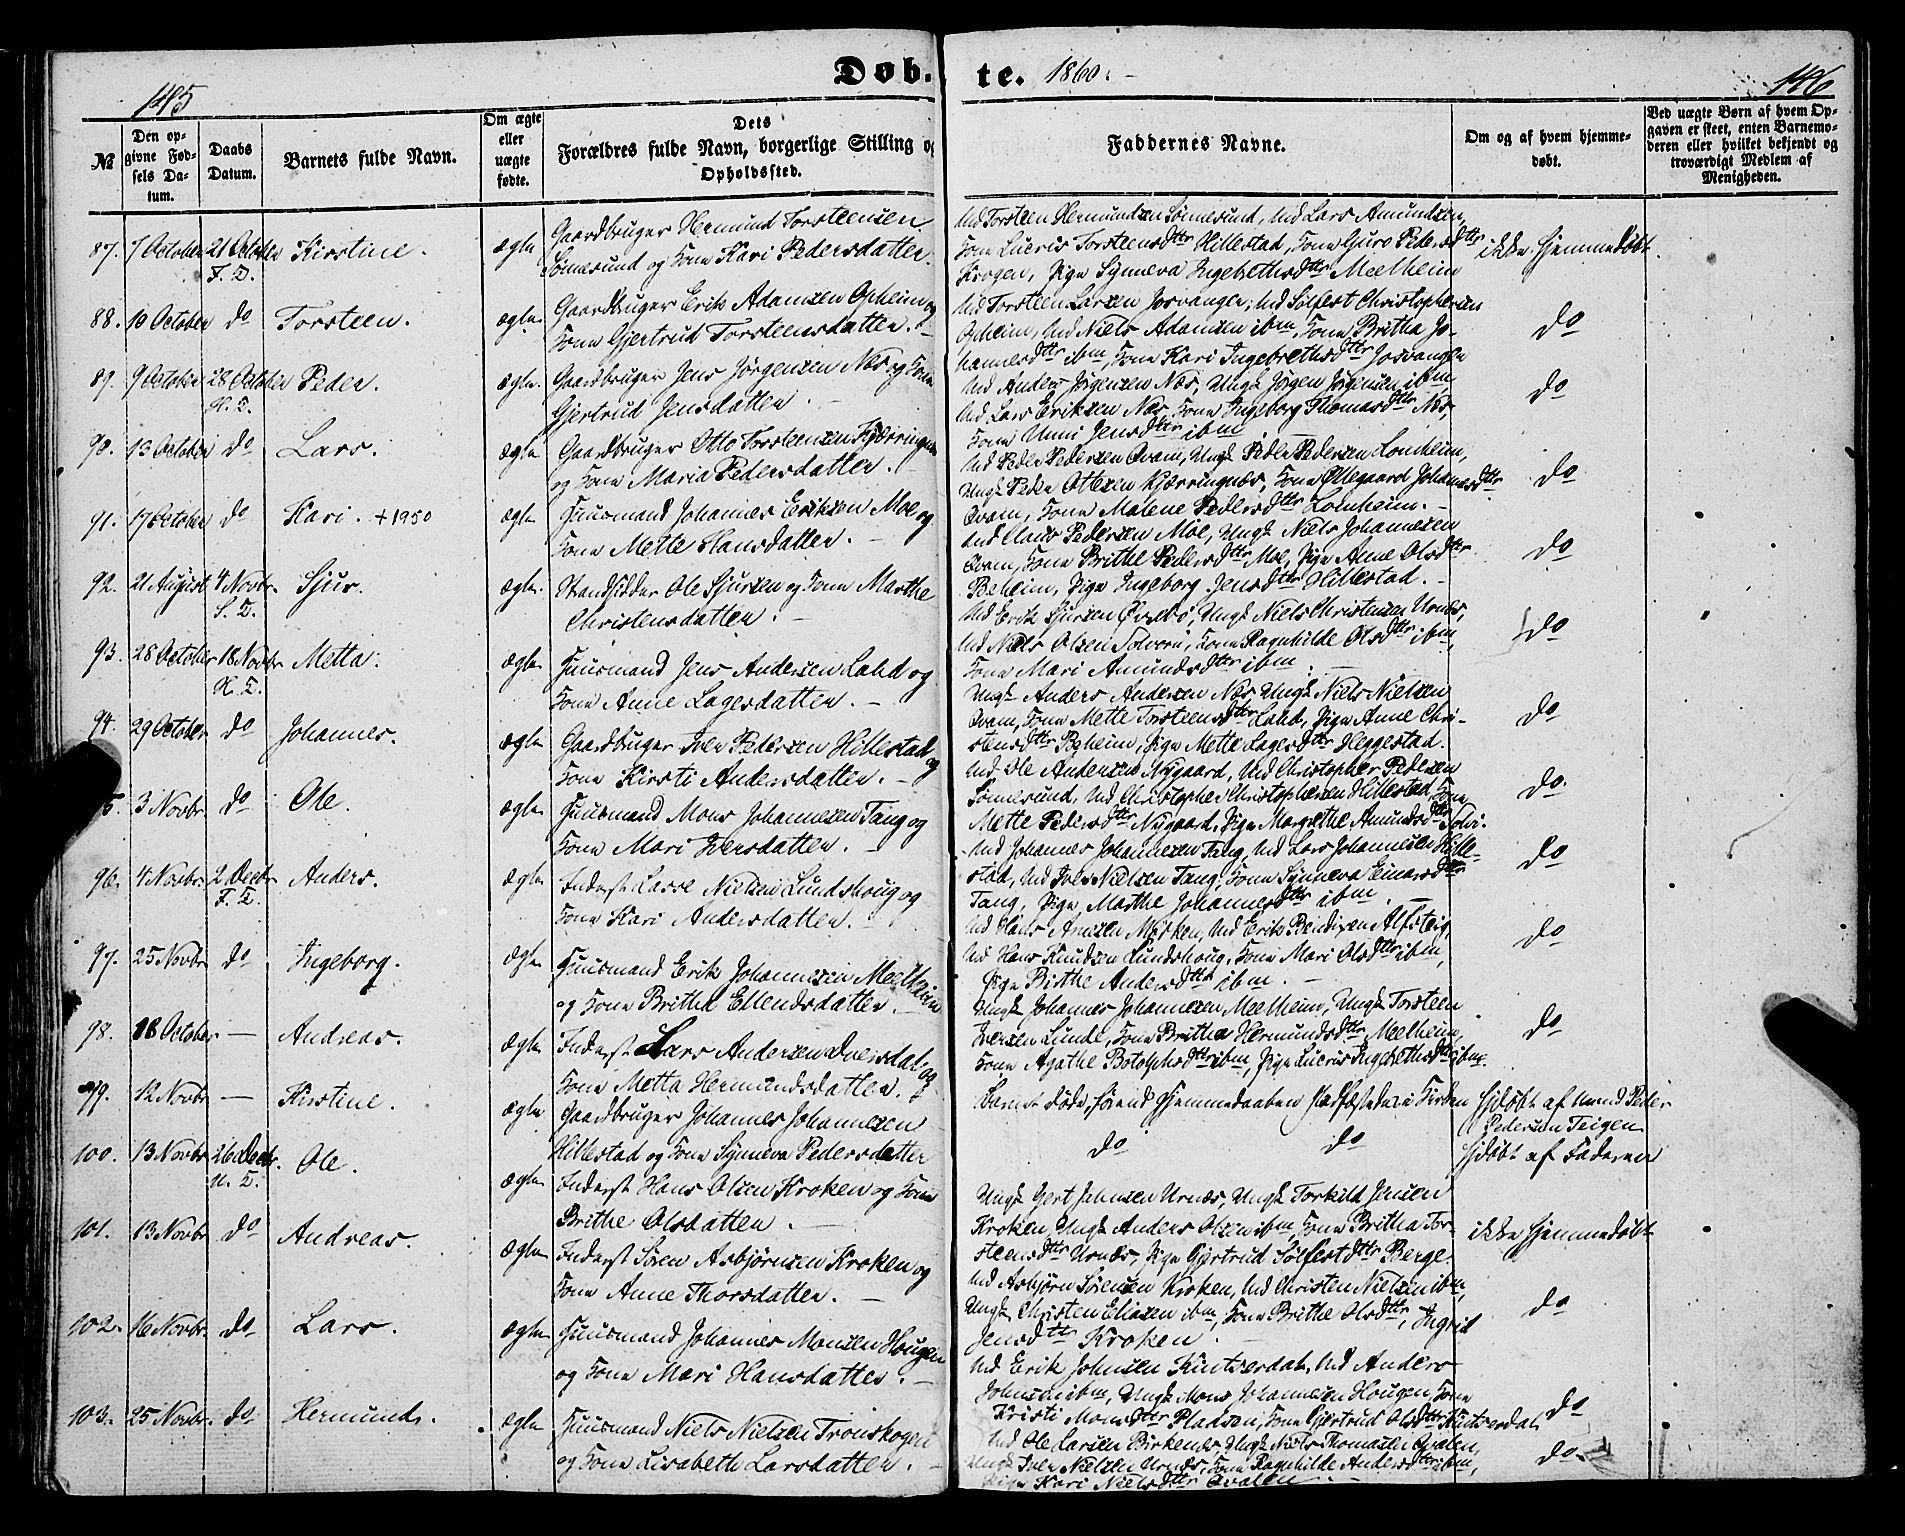 145
Døb-
te.
1860.
146
№
Den op-
givne Fød-
sels Da-
tum.
Daabs
Datum.
Barnets fulde Navn.
Om ægte
eller
uægte
fødte.
Dets
Forældres fulde Navn, borgerlige Stilling og
Opholdssted.
Faddernes Navne.
Om og af hvem hjemme-
døbt.
Ved uægte Børn af hvem Op-
gaven er skeet, enten Barnemo-
deren eller hvilket bekjendt og
troværdigt Medlem af
Menigheden.
87. 7 October 21 October Kirstine. ægte Gaardbruger Hermund Torsteensen
F. T. Sømesund og Kone Kari Pedersdatter.
Torsteen Hermundsen Sømesund, Lars Amundsen,
Kone Lucris Torsteensdttr Hillestad, Kone Gjuro Pedersdttr
Krogen, Pige Synneva Ingebrethsdttr Meelheim
ikke hjemmedøbt.
88. 10 October do Torsteen. ægte Gaardbruger Erik Adamsen Opheim og
Kone Gjertrud Torsteensdatter.
Torsteen Larsen Josvanger, Sølfest Christophersen
Opheim, Niels Adamsen ibm, Kone Britha Jo-
hannesdttr ibm, Kone Kari Ingebrethsdttr Josvanger
do
89. 9 October 28 October Peder. ægte Gaardbruger Jens Jørgensen Næs og Kone
Gjertrud Jensdatter.
Anders Jørgensen Næs, Ungk Jørgen Jørgensen ibm,
Lars Eriksen Næs, Kone Ingeborg Thomasdttr Næs,
Kone Unni Jensdttr ibm
do
90. 13 October do Lars. ægte Gaardbruger Otto Torsteensen Kjærringnæs
og Kone Maria Pedersdatter.
Peder Pedersen Qvam, Ungk Peder Pedersen Lomheim,
Ungk Peder Ottesen Kjærringnæs, Kone Øllegaard Johannesdttr
Qvam, Kone Malene Pedersdttr Lomheim.
do
91. 17 October do Kari. +1950 ægte Huusmand Johannes Eriksen Moe og
Kone Mette Hansdatter.
Claus Pedersen Moe, Ungk Niels Johannesen
Qvam, Kone Brithe Pedersdttr Moe, Pige Anne Olsdttr
Beheim, Pige Ingeborg Jensdttr Hillestad.
do
92. 21 August 4 Novbr. Sjur. ægte Strandsidder Ole Sjursen og Kone Marthe
Christensdatter.
Erik Sjursen Øvrebø, Ungk Niels Christensen Urnes,
Niels Olsen Solvorn, Kone Ragnhilde Olsdttr ibm,
Kone Mari Amundsdttr ibm
do
93. 28 October 18 Novbr Metta. ægte Huusmand Jens Andersen Lahd og
Kone Anne Lagesdatter.
Ungk Anders Andersen Næs, Ungk Niels Nielsen
Qvam, Kone Mette Torsteensdttr Lahd, Pige Anne Chri-
stensdttr Beheim, Pige Mette Lagesdttr Heggestad.
do
94. 29 October do Johannes. ægte Gaardbruger Iver Pedersen Hillestad og
Kone Kirsti Andersdatter.
Ole Andersen Nygaard, Christopher Pedersen
Sømesund, Christopher Christophersen Hillestad, Kone
Mette Pedersdttr Nygaard, Pige Margrethe Amundsdttr
do.
5. 3 Novbr do Ole. ægte Huusmand Mons Johannesen Tang og
Kone Mari Iversdatter.
Johannes Johannesen Tang, Lars Johannesen Hille-
stad, Iver Nielsen Tang, Kone Synneva Einarsdttr
Tang, Pige Marthe Johannesdttr ibm.
do
96. 4 Novbr. 2 Decbr. Anders. ægte Inderst Lasse Nielsen Lundshoug og
F. T. Kone Kari Andersdatter.
Hans Arnesen Mørken, Erik Bendixen Alfsteig,
Hans Knudsen Lundshoug, Kone Mari Olsdttr ibm,
Pige Birthe Andersdttr ibm.
do
97. 25 Novbr do Ingeborg. ægte Huusmand Erik Johannesen Meelheim
og Kone Britha Ellendsdatter.
Ungk Johannes Johannesen Meelheim, Ungk Torsteen
Iversen Lunde, Kone Britha Hermundsdttr Meelheim,
Kone Agathe Botolphsdttr ibm, Pige Lucris Ingebrethsdttr ibm.
do
98. 18 October — Andreas. ægte Inderst Lars Andersen Dversdal og
Kone Metta Hermundsdatter.
Barnet døde, førend Hjemmedaaben stadfæstedes i Kirken
Hjdøbt af Peder
Pedersen Teigen
99. 12 Novbr — Kirstine. ægte Gaardbruger Johannes Johannesen
Hillestad og Kone Synneva Pedersdatter
do do
Hjdøbt af Faderen
100. 13 Novbr 26 Decbr. Ole. ægte Inderst Hans Olsen Kroken og Kone
Brithe Olsdatter.
Ungk Gert Johnsen Urnæs, Ungk Torkild Jensen
Kroken, Ungk Anders Olsen ibm, Kone Britha Tor-
steensdttr Urnæs, Pige Gjertrud Sølfestdttr Berge.
ikke hjemmedøbt
101. 13 Novbr do Andreas. ægte Inderst Søren Asbjørnsen Kroken og
Kone Anne Thorsdatter.
Asbjørn Sørensen Kroken, Christen Nielsen ibm,
Ungk Christen Eliasen ibm, Kone Brithe Olsdttr, Ingrid
Jensdttr Kroken.
do
102. 16 Novbr. do. Lars. ægte Huusmand Johannes Monsen Hougen
og Kone Mari Hansdatter.
Erik Johnsen Kintserdal, Anders
Johnsen ibm, Ungk Mons Johannesen Hougen, Kone
Kristi Monsdttr Pladsen, Kone Gjertrud Olsdttr Kintserdal
do
103. 25 Novbr. do. Hermund. ægte Huusmand Niels Nielsen Tronskogen
og Kone Lisabeth Larsdatter.
Ole Larsen Birkenes, Ungk Niels Thomassen Qvalen,
Ungk Iver Nielsen Urnæs, Kone Ragnhilde Andersdttr ibm,
Pige Kari Nielsdttr Qvalen
do.